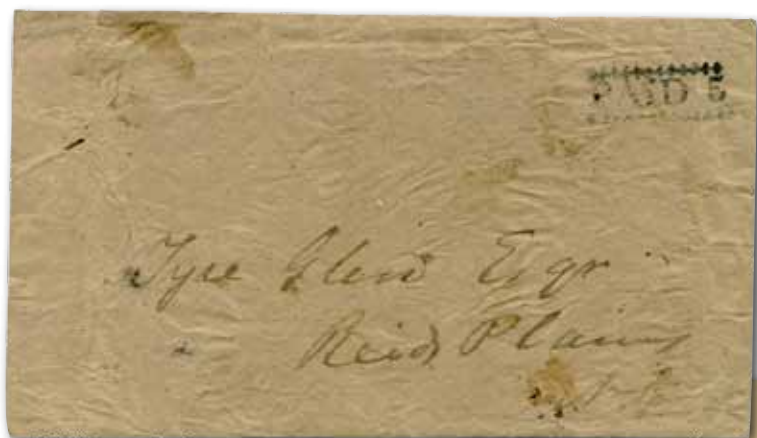 PAID 5
Tyre Glen Esqr
Plains